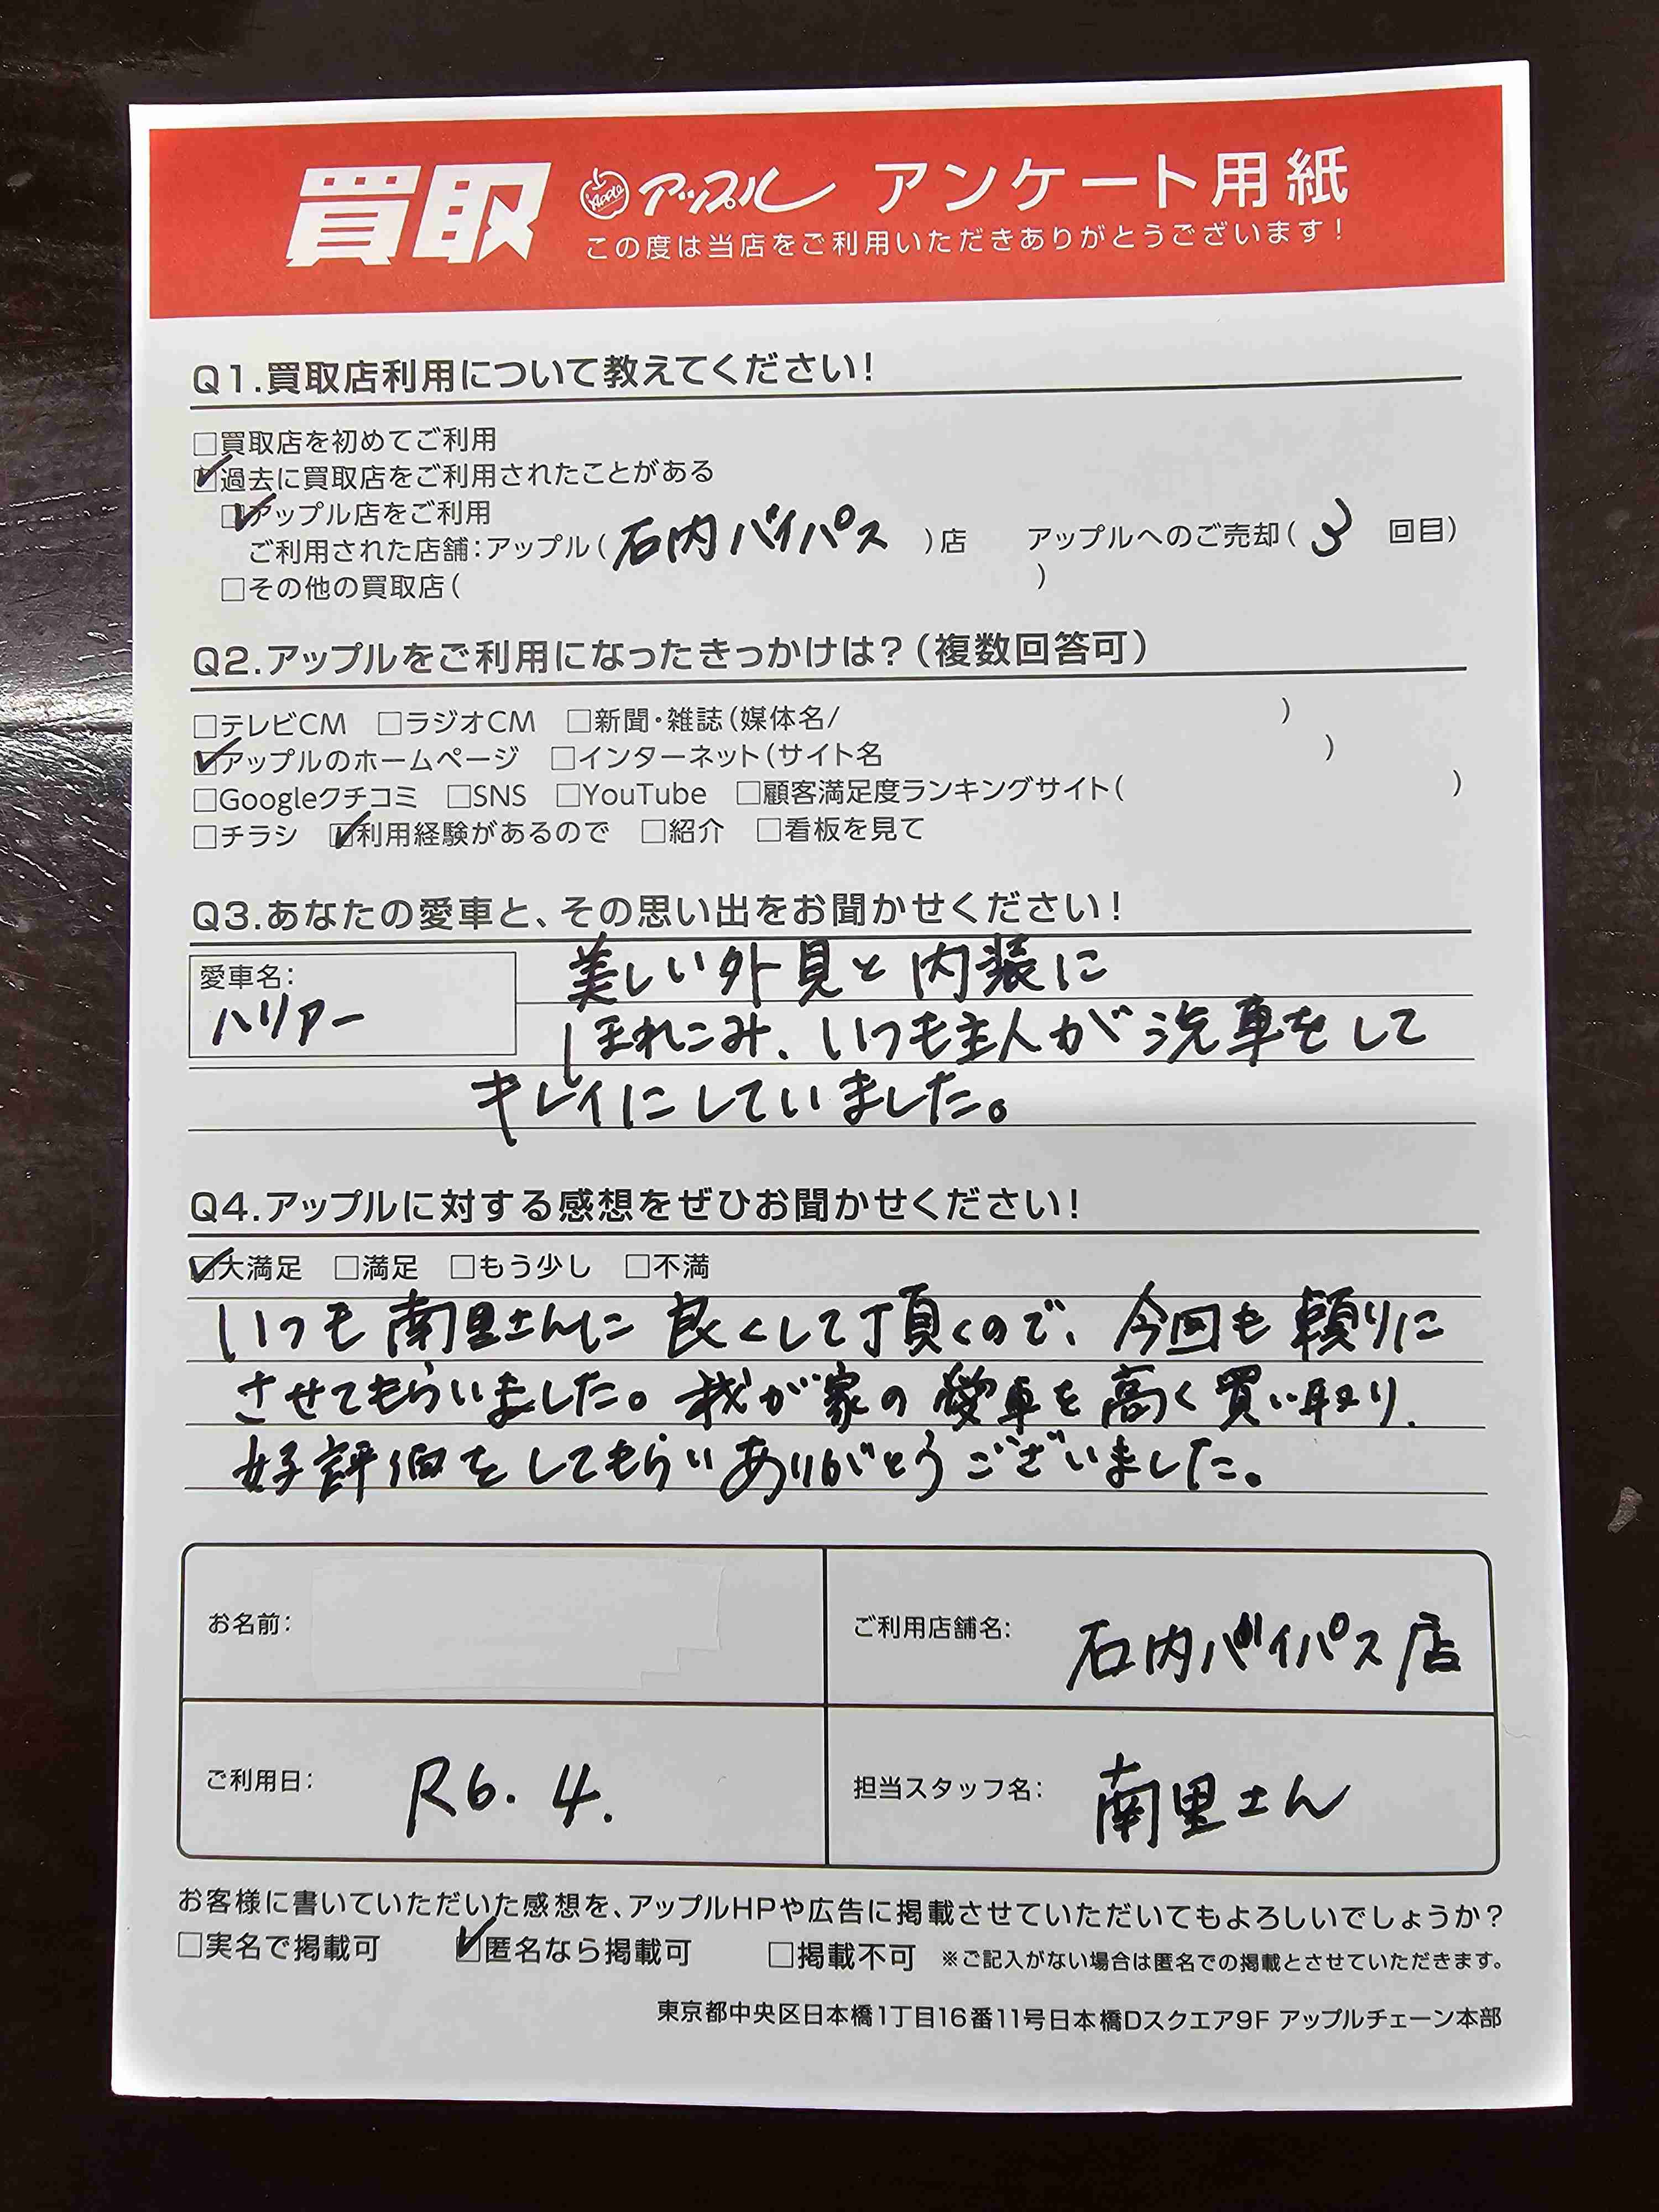 買取 アップル アンケート用紙
この度は当店をご利用いただきありがとうございます!
Q1.買取店利用について教えてください!
□買取店を初めてご利用
☑過去に買取店をご利用されたことがある
☑アップル店をご利用
ご利用された店舗:アップル(石内バイパス)店 アップルへのご売却(3回目)
□その他の買取店( )
Q2.アップルをご利用になったきっかけは?(複数回答可)
□テレビCM □ラジオCM □新聞・雑誌(媒体名/ )
☑アップルのホームページ □インターネット(サイト名 )
□Googleクチコミ □SNS □YouTube □顧客満足度ランキングサイト( )
□チラシ ☑利用経験があるので □紹介 □看板を見て
Q3.あなたの愛車と、その思い出をお聞かせください!
愛車名:
ハリアー
美しい外見と内装に
ほれこみ、いつも主人が洗車をして
キレイにしていました。
Q4.アップルに対する感想をぜひお聞かせください!
☑大満足 □満足 □もう少し □不満
いつも南里さんに良くして頂くので、今回も頼りに
させてもらいました。我が家の愛車を高く買い取り、
好評価をしてもらいありがとうございました。
お名前:
ご利用店舗名: 石内バイパス店
ご利用日: R6.4.
担当スタッフ名: 南里さん
お客様に書いていただいた感想を、アップルHPや広告に掲載させていただいてもよろしいでしょうか?
□実名で掲載可 ☑匿名なら掲載可 □掲載不可 ※ご記入がない場合は匿名での掲載とさせていただきます。
東京都中央区日本橋1丁目16番11号日本橋Dスクエア9F アップルチェーン本部